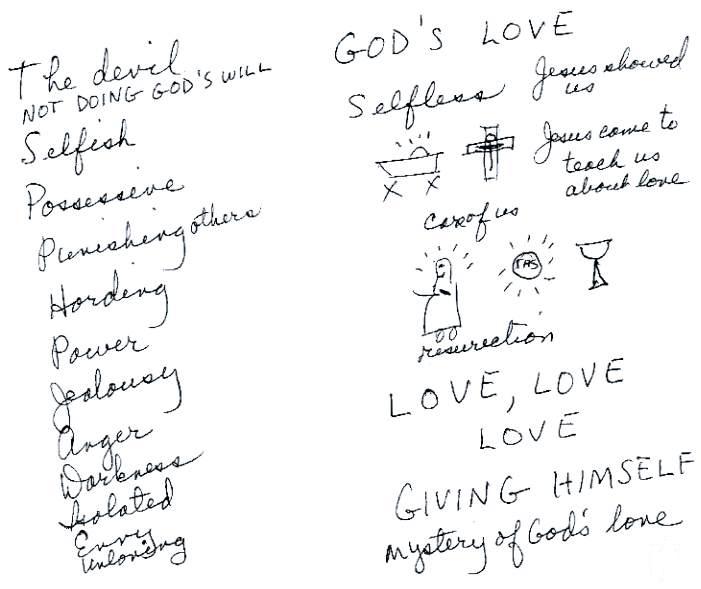 The devil
NOT DOING GOD'S WILL
Selfish
Possessive
Punishing others
Hording
Power
Jealousy
Anger
Darkness
Isolated
Envy
Unloving
GOD'S LOVE
Selfless
Jesus showed
us
Jesus come to
teach us
about love
of us
resurrection
LOVE, LOVE
LOVE
GIVING HIMSELF
mystery of God's love